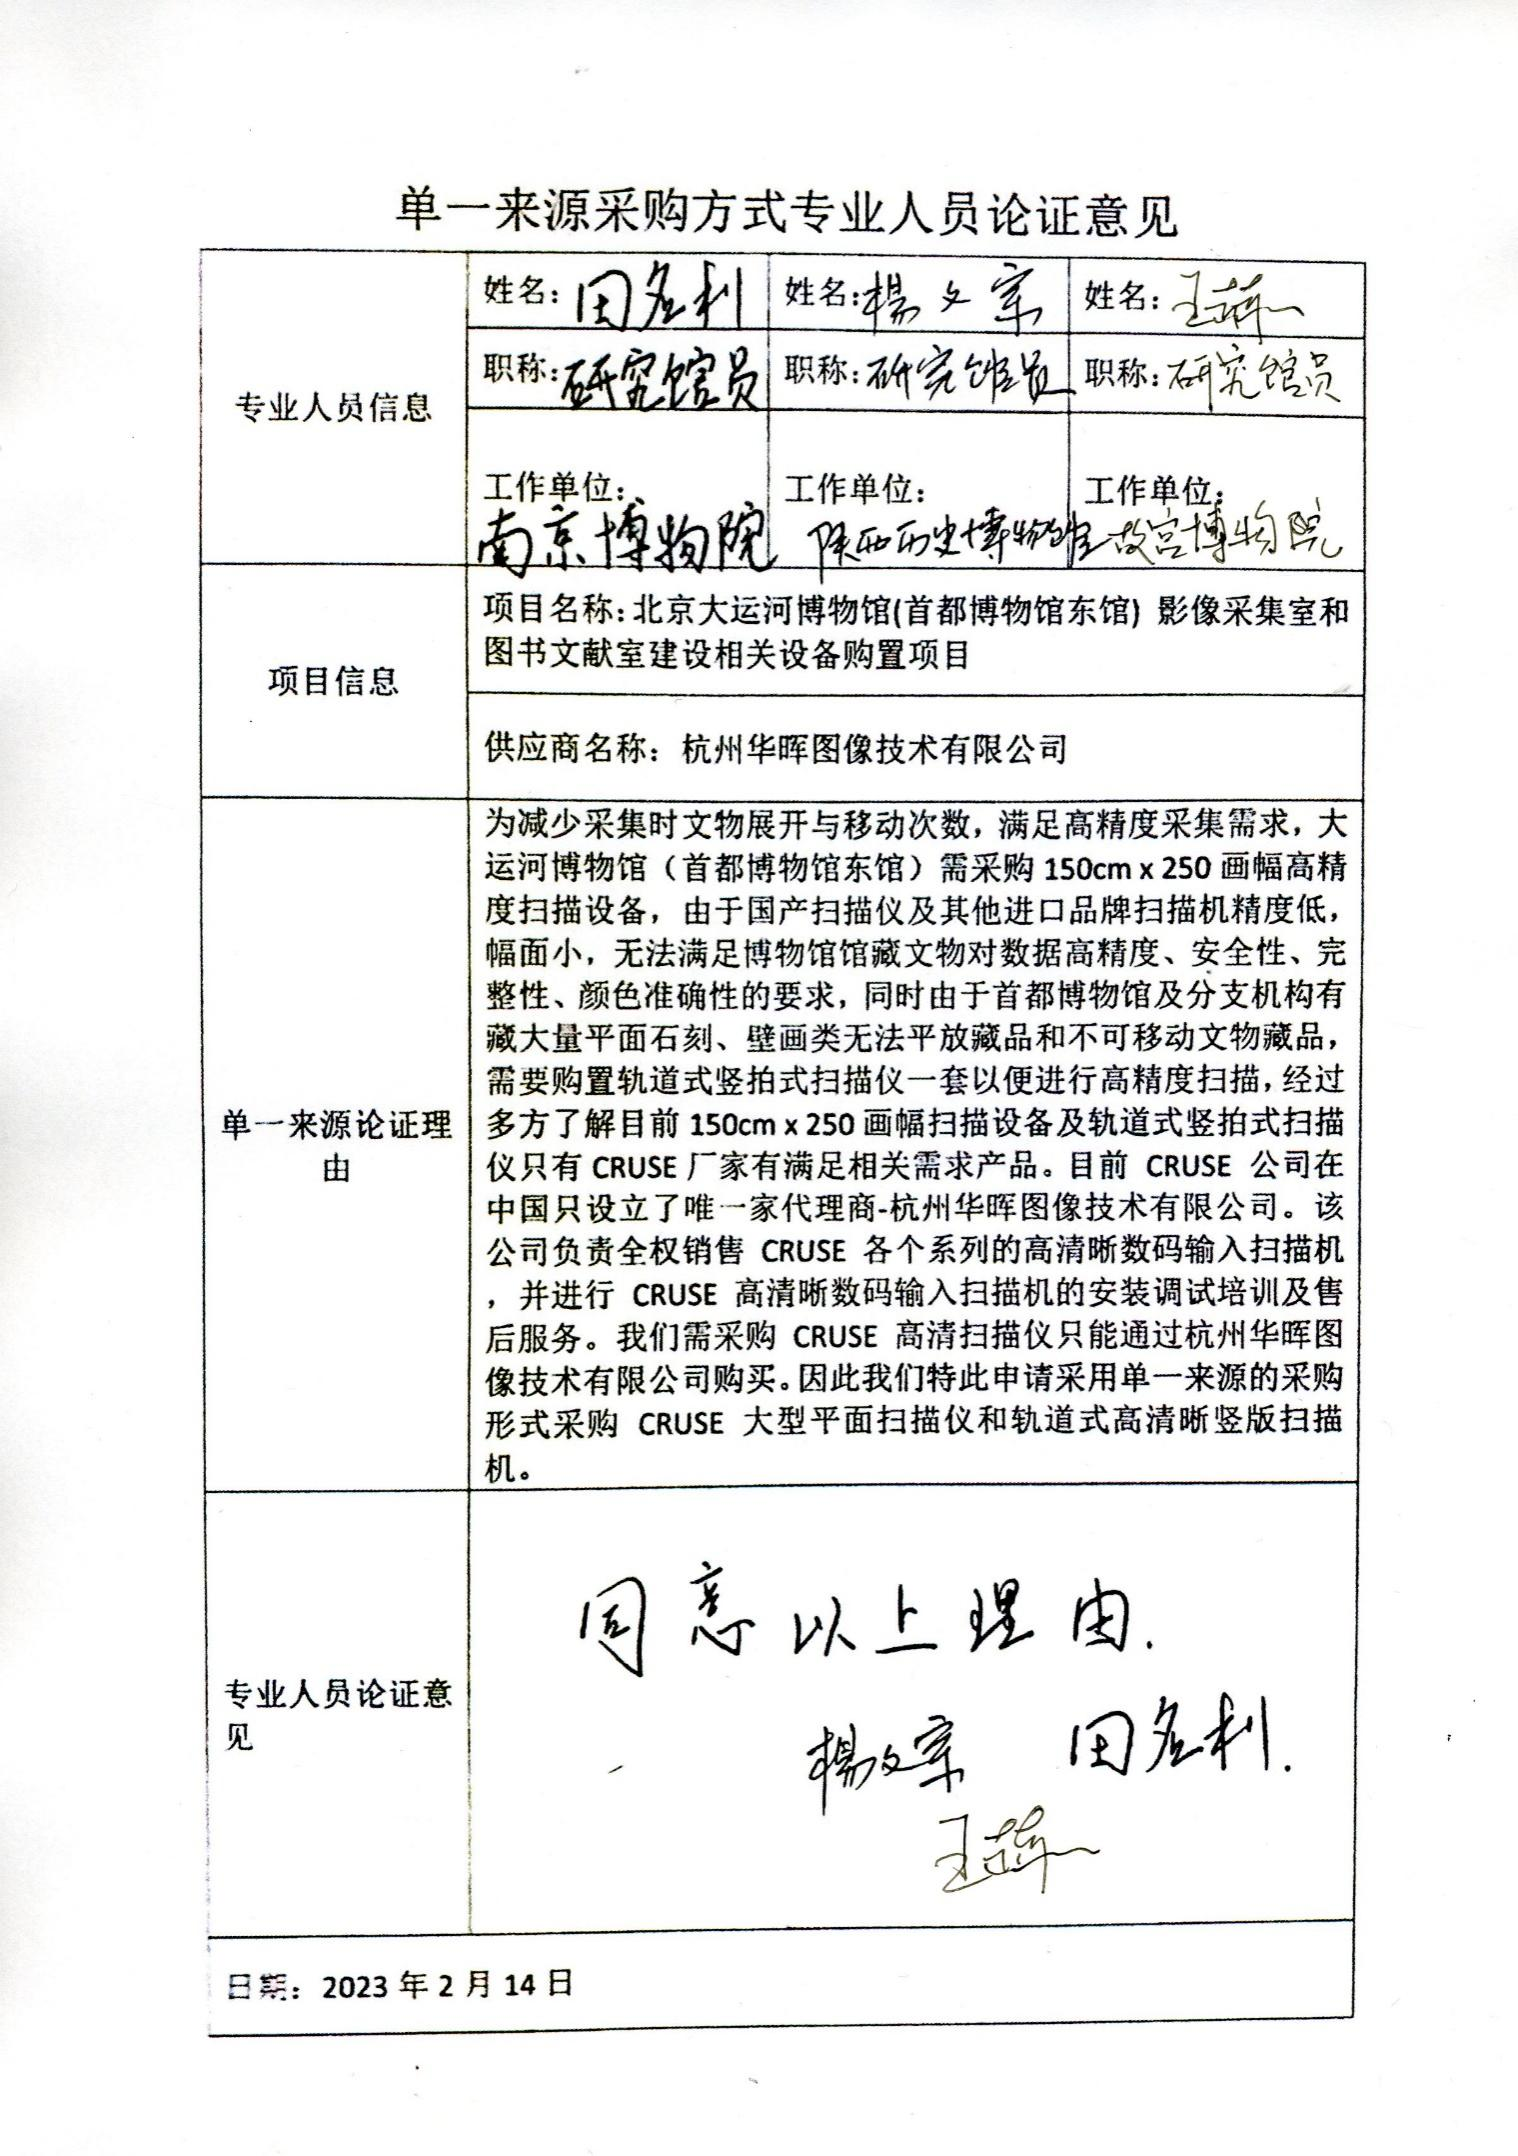 单一来源采购方式专业人员论证意见
专业人员信息
姓名：田名利
姓名：楊文宗
姓名：王
职称：研究馆员
职称：研究馆员
职称：研究馆员
工作单位：
南京博物院
工作单位：
陕西历史博物馆
工作单位：
故宫博物院
项目信息
项目名称：北京大运河博物馆(首都博物馆东馆) 影像采集室和
图书文献室建设相关设备购置项目
供应商名称：杭州华晖图像技术有限公司
单一来源论证理
由
为减少采集时文物展开与移动次数，满足高精度采集需求，大
运河博物馆（首都博物馆东馆）需采购 150cm x 250 画幅高精
度扫描设备，由于国产扫描仪及其他进口品牌扫描机精度低，
幅面小，无法满足博物馆馆藏文物对数据高精度、安全性、完
整性、颜色准确性的要求，同时由于首都博物馆及分支机构有
藏大量平面石刻、壁画类无法平放藏品和不可移动文物藏品，
需要购置轨道式竖拍式扫描仪一套以便进行高精度扫描，经过
多方了解目前 150cm x 250 画幅扫描设备及轨道式竖拍式扫描
仪只有 CRUSE 厂家有满足相关需求产品。目前 CRUSE 公司在
中国只设立了唯一家代理商-杭州华晖图像技术有限公司。该
公司负责全权销售 CRUSE 各个系列的高清晰数码输入扫描机
，并进行 CRUSE 高清晰数码输入扫描机的安装调试培训及售
后服务。我们需采购 CRUSE 高清扫描仪只能通过杭州华晖图
像技术有限公司购买。因此我们特此申请采用单一来源的采购
形式采购 CRUSE 大型平面扫描仪和轨道式高清晰竖版扫描
机。
专业人员论证意
见
同意以上理由.
楊文宗 田名利.
王
日期：2023 年 2 月 14 日